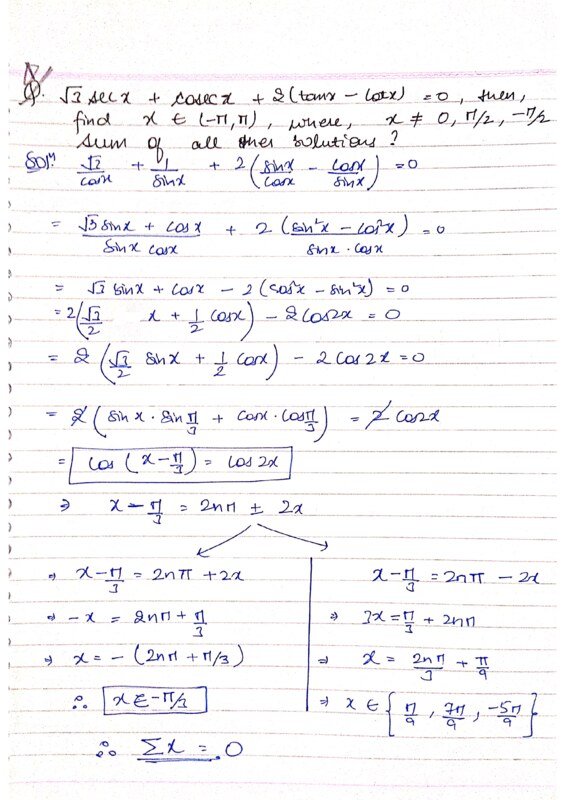 Q. √3 sec x + cosec x + 2(tan x - cot x) = 0, then,
find x ∈ (-π, π), where, x ≠ 0, π/2, -π/2
Sum of all solutions?
Solⁿ: √3/cos x + 1/sin x + 2(sin x/cos x - cos x/sin x) = 0
= (√3 sin x + cos x)/(sin x cos x) + 2(sin²x - cos²x)/(sin x · cos x) = 0
= √3 sin x + cos x - 2(cos²x - sin²x) = 0
= 2(√3/2 x + 1/2 cos x) - 2 cos 2x = 0
= 2(√3/2 sin x + 1/2 cos x) - 2 cos 2x = 0
= 2(sin x · sin π/3 + cos x · cos π/3) = 2 cos 2x
= cos(x - π/3) = cos 2x
⇒ x - π/3 = 2nπ ± 2x
⇒ x - π/3 = 2nπ + 2x
⇒ -x = 2nπ + π/3
⇒ x = -(2nπ + π/3)
∴ x ∈ -π/3
x - π/3 = 2nπ - 2x
⇒ 3x = π/3 + 2nπ
⇒ x = 2nπ/3 + π/9
⇒ x ∈ {π/9, 7π/9, -5π/9}
∴ Σx = 0